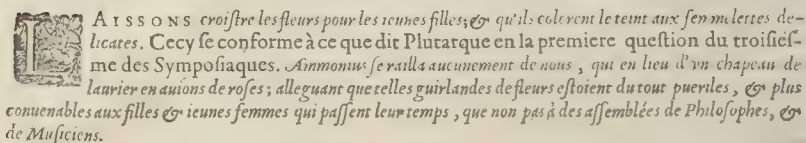 LAISSONS croiſtre les fleurs pour les ieunes filles; & qu'ils colorent le teint aux femmelettes de-
licates. Cecy ſe conforme à ce que dit Plutarque en la premiere queſtion du troiſieſ-
me des Sympoſiaques. Ammonius ſe railla aucunement de nous, qui en lieu d'vn chapeau de
laurier en auions de roſes; alleguant que telles guirlandes de fleurs eſtoient du tout pueriles, & plus
conuenables aux filles & ieunes femmes qui paſſent leur temps, que non pas à des aſſemblées de Philoſophes, &
de Muſiciens.